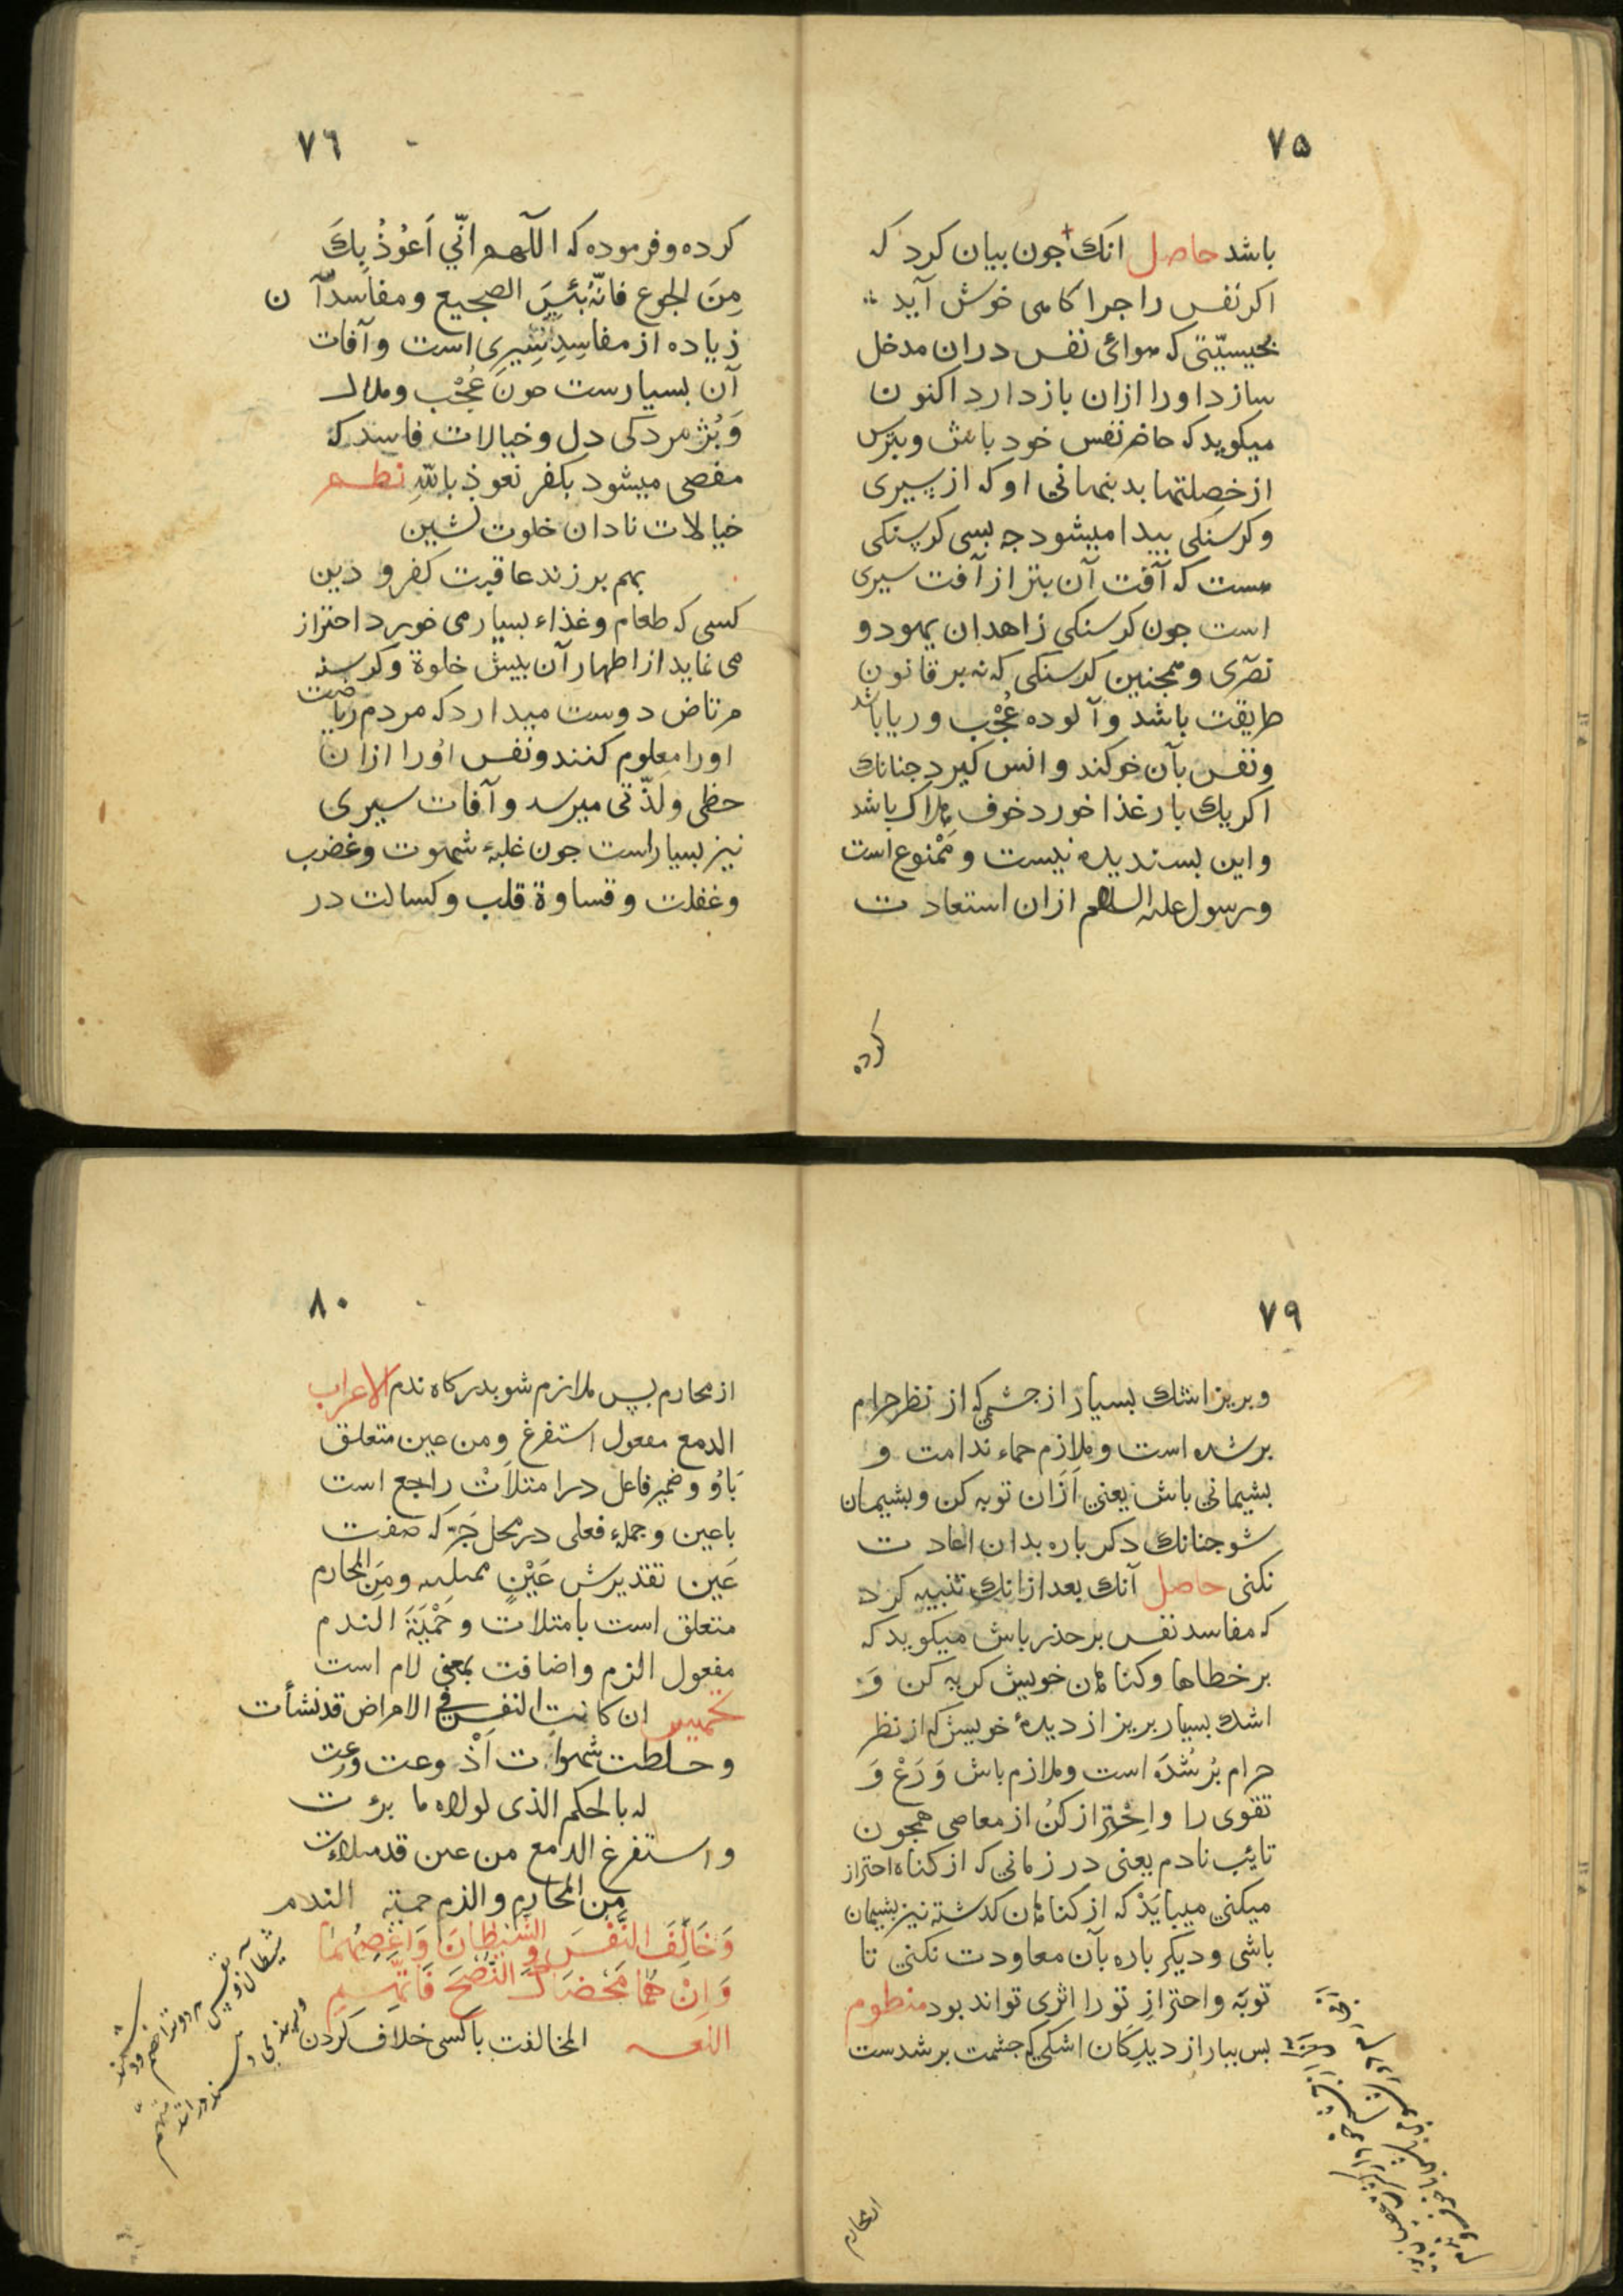 ٧٥
باشد حاصل انك جون بیان كرد كه
اكر نفس را جرا كامی خوش آید
بحیسیّتی كه هوائی نفس دران مدخل
سازد اورا ازان بازدارد اكنون
میكوید كه حاضر نفس خود باش وبترس
از خصلتها بد بنهانی او كه از سیری
وكرسنكی بیدا میشود جه بسی كرسنكی
هست كه آفت آن بتر از آفت سیری
است جون كرسنكی زاهدان یهود و
نصری وهمجنین كرسنكی كه نه بر قانون
طریقت باشد وآلوده عُجْب وریا باشد
ونفس بآن خو كند وانس كیرد جنانك
اكر یك بار غذا خورد خوف هلاك باشد
واین بسندیده نیست ومَمْنوع است
ورسول علیه السلام ازان استعادت
كرده
٧٦
كرده وفرموده كه اللّهم انّي اَعُوْذُ بِكَ
مِنَ الجوع فانّهُ بئسَ الضجیع ومفاسد آن
زیاده از مفاسِدِ سِیرِی است وآفات
آن بسیارست جون عُجْب وملال
وَبُژمردكی دل وخیالات فاسد كه
مفضی میشود بكفر نعوذ باللّهِ نظم
خیالات نادان خلوت نشین
بهم بر زند عاقبت كفر و دین
كسی كه طعام وغذاء بسیار می خورد احتراز
می نماید از اظهار آن بیش خلوة وكرسنه
مرتاض دوست میدارد كه مردم ریاضت
اورا معلوم كنند ونفس اورا ازان
حظی ولذّتی میرسد وآفات سیری
نیز بسیار است جون غلبۀ شهوت وغضب
وغفلت وقساوة قلب وكسالت در
٧٩
وبریز اشك بسیار از جشمی كه از نظر حرام
بر شده است وملازم حماء ندامت و
بشیمانی باش یعنی اَزَان توبه كن وبشیمان
شو جنانك دكر باره بدان اعادت
نكنی حاصل آنك بعد ازانك تنبیه كرد
كه مفاسد نفس بر حذر باش میكوید كه
بر خطاها وكناهان خویش كریه كن وَ
اشك بسیار بریز از دیدۀ خویش كه از نظر
حرام بُر شُدَه است وملازم باش وَرَعْ وَ
تقوی را واِحْتِراز كنُ از معاصی همجون
تایٔب نادم یعنی در زمانی كه از كناه احتراز
میكنی میبایَدْ كه از كناهان كدشته نیز بشیمان
باشی ودیكر باره بآن معاودت نكنی تا
توبَه واحترازِ تو را اثری تواند بود منظوم
بس ببار از دیدكان اشكی كه جشمت بر شدست
از محارم
٨٠
از محارم بس ملازم شو بدركاه ندم الاعراب
الدمع مفعول استفرغ ومن عین متعلق
بَاوُ وضمیر فاعل در امتلاَتْ راجع است
باعین وجملۀ فعلی در محل جَرّ كه صفت
عَین تقدیرش عَیْنٍ ممتلیه ومِنَ المحارم
متعلق است بامتلات وحَمْیَةَ الندم
مفعول الزم واضافت بمعنی لام است
تخمیس ان كانت النفس في الامراض قد نشأت
وخلطت شهوات اذ وعت ورعت
له بالحكم الذی لولاه ما برئت
واستفرغ الدمع من عین قد امتلات
مِن المحارم والزم حمیة الندم
وَخَالِفَ النَّفْسَ وَالشَّیْطَانَ وَاعْصِهِمَا
وَاِنْ هُمَا مَحَّضَاكَ النُّصْحَ فَاتَّهِمِ
اللغه المخالفت باكسی خلاف كردن